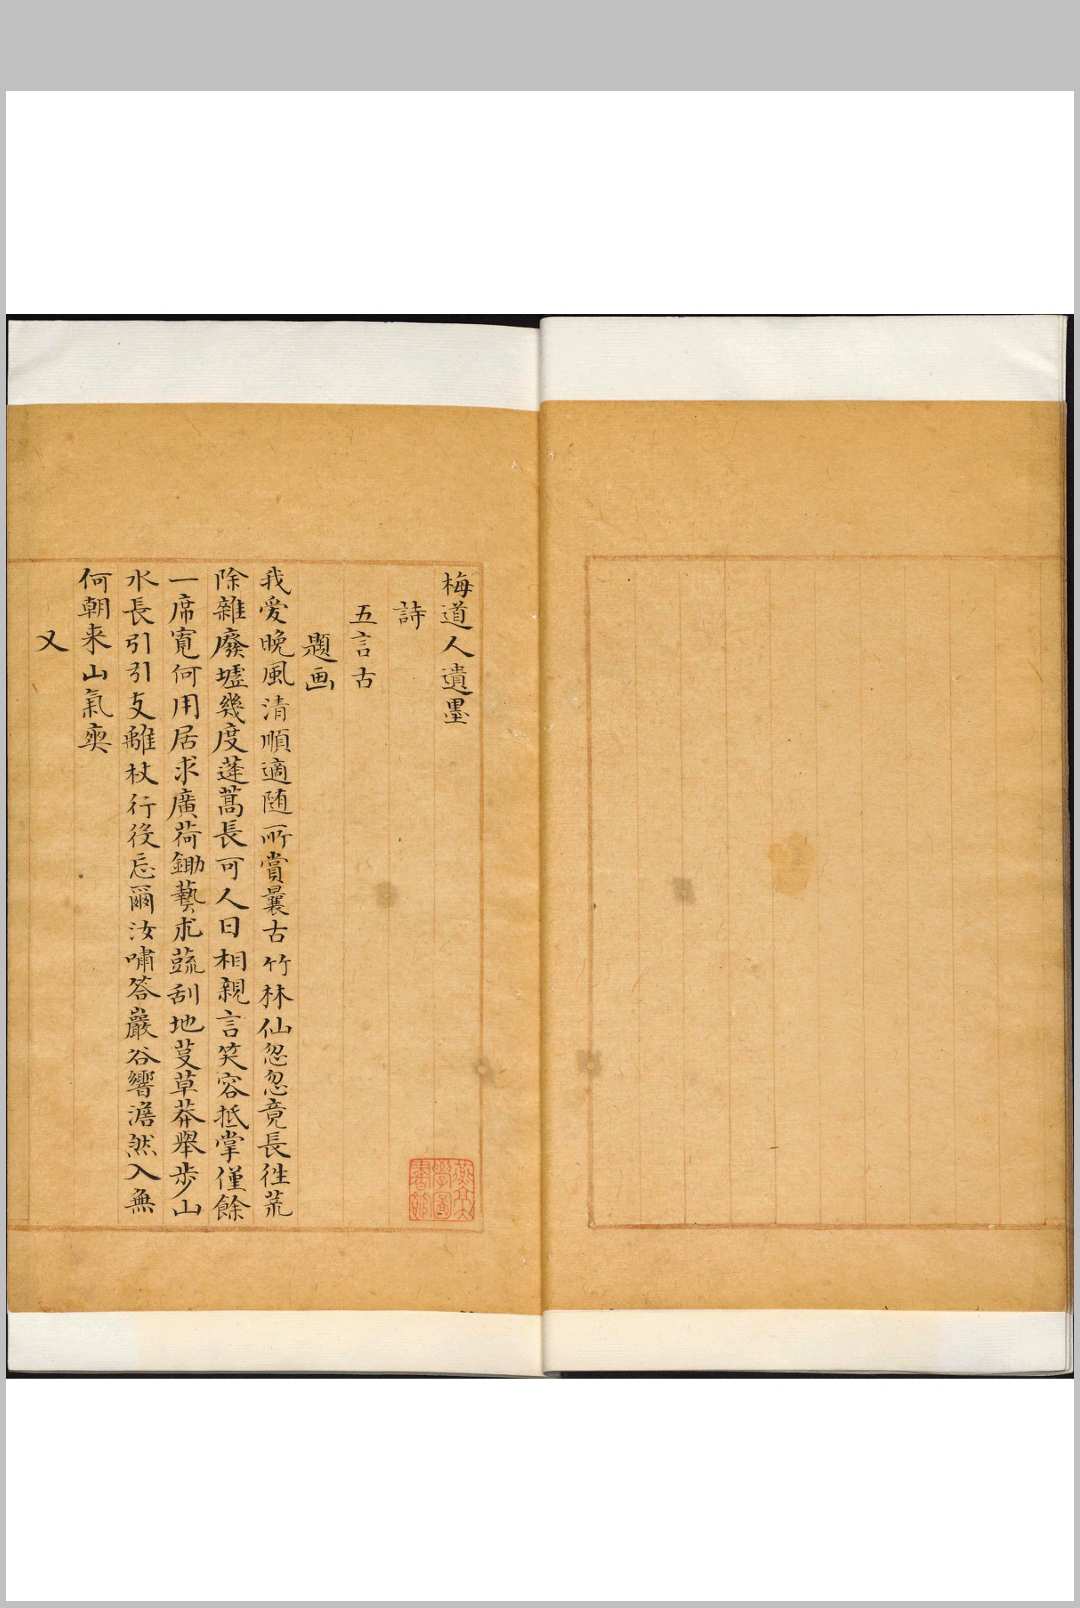 梅道人遺墨
詩
五言古
題画
我爱晚風清順適随所賞曩古竹林仙忽忽竟長往荒
除雜廢墟幾度蓬蒿長可人日相親言笑容抵掌僅餘
一席寬何用居求廣荷鋤藝求蔬刮地芟草莽舉步山
水長引引支離杖行役忘爾汝嘯答巖谷響澹然入無
何朝来山氣爽
又
燕京大學圖書部